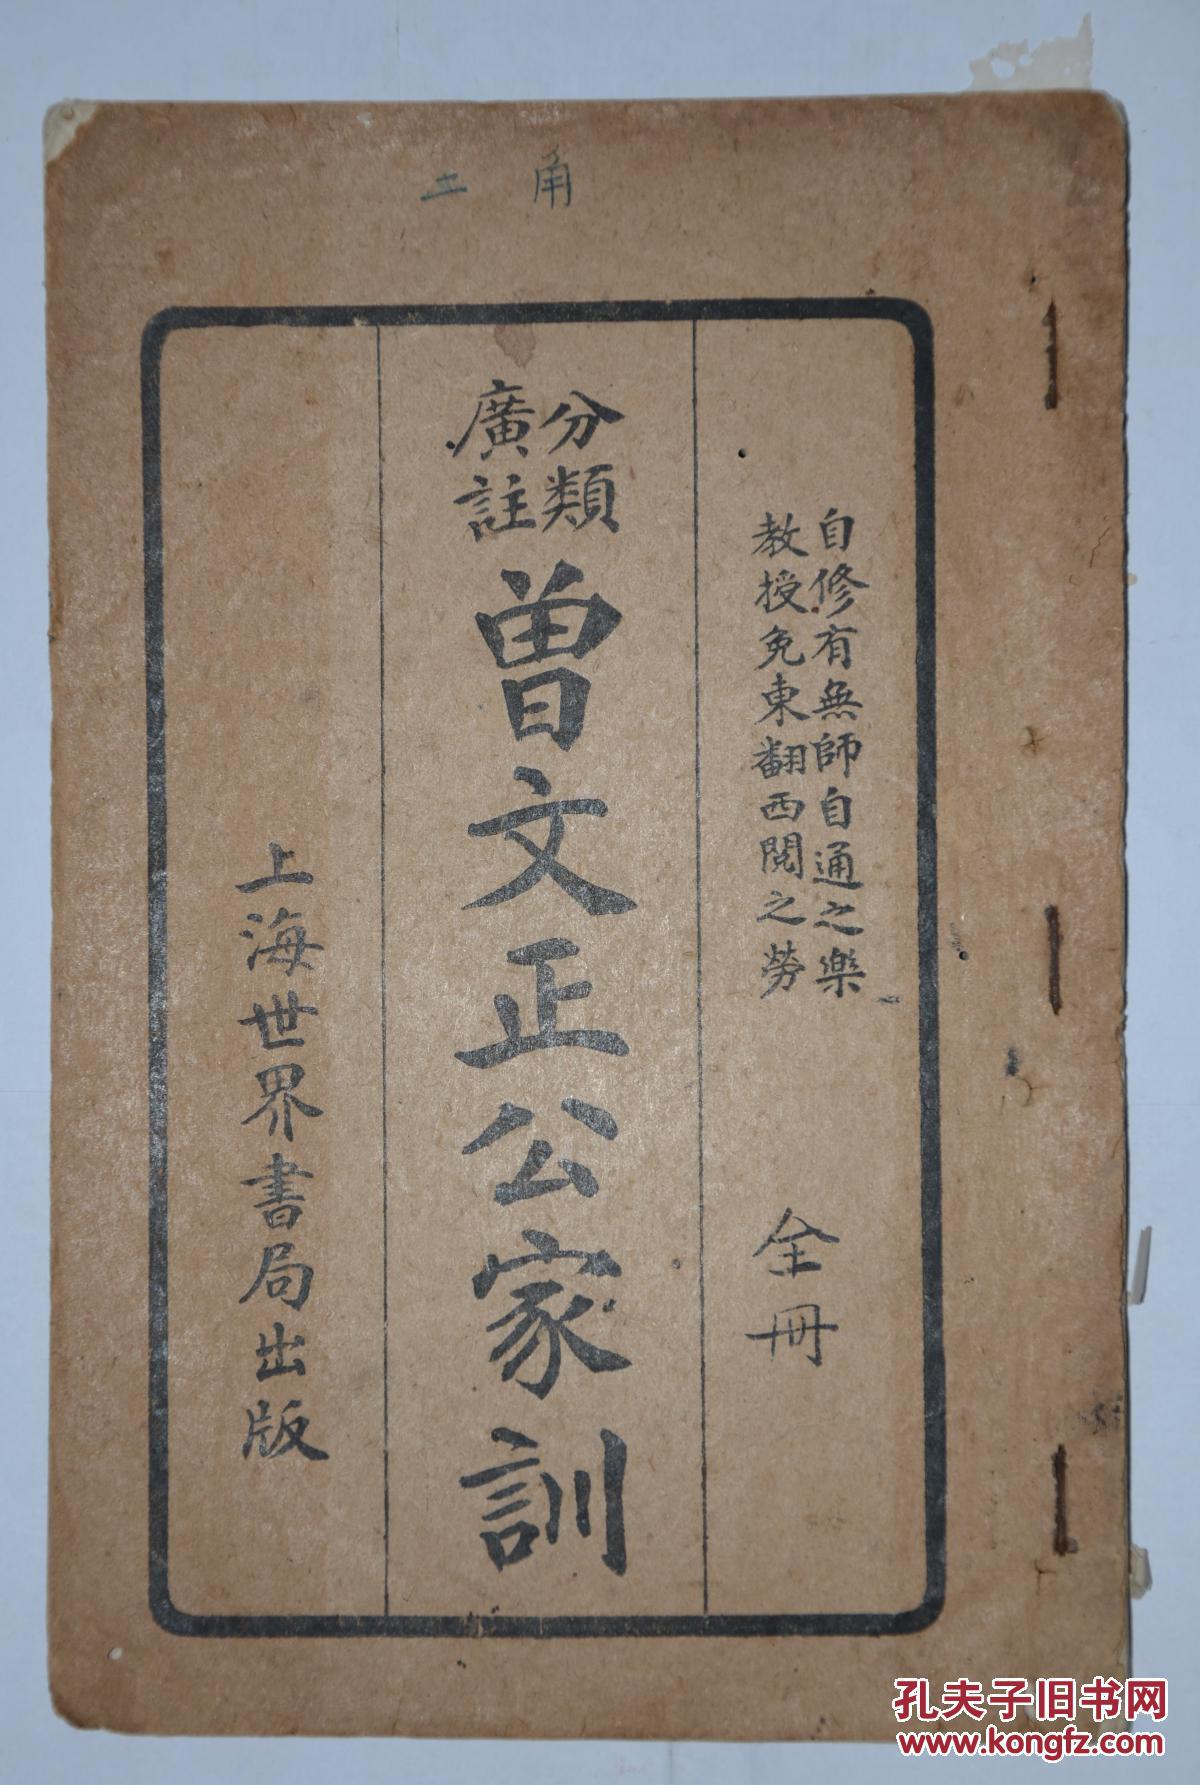 角
自修有無師自通之樂
教授免東翻西閱之勞
全冊
分類
廣註
曾文正公家訓
上海世界書局出版
孔夫子旧书网
www.kongfz.com